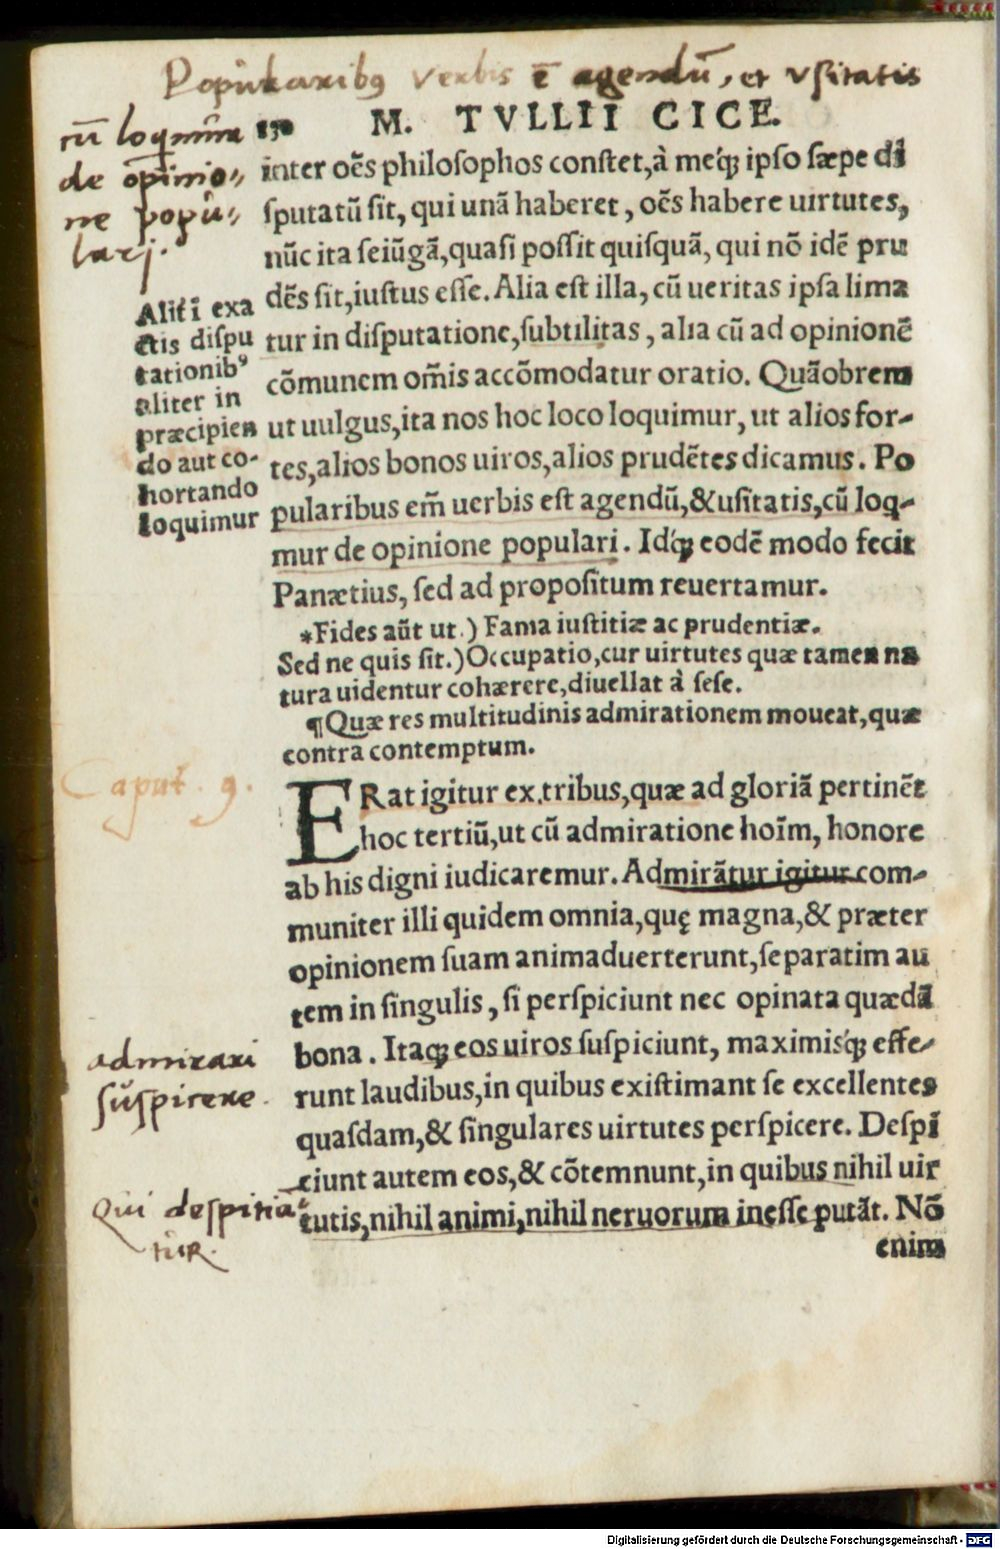 Popularibꝰ verbis ē agendū, et vsitatis
cū loqmur
de opinio„
ne popu„
lari.
150 M. TVLLII CICE.
inter oẽs philoſophos conſtet, à meq́ꝫ ipſo ſæpe di
ſputatũ ſit, qui unã haberet, oẽs habere uirtutes,
nũc ita ſeiũgã, quaſi poſſit quiſquã, qui nõ idẽ pru
dẽs ſit, iuſtus eſſe. Alia eſt illa, cũ ueritas ipſa lima
tur in diſputatione, ſubtilitas, alia cũ ad opinionẽ
cõmunem om̃is accõmodatur oratio. Quãobrem
ut uulgus, ita nos hoc loco loquimur, ut alios for-
tes, alios bonos uiros, alios prudẽtes dicamus. Po
pularibus em̃ uerbis eſt agendũ, & uſitatis, cũ loq-
mur de opinione populari. Idq́ꝫ eodẽ modo fecit
Panætius, ſed ad propoſitum reuertamur.
Alit̃ ĩ exa
ctis diſpu
tationibꝰ
aliter in
præcipien
do aut co-
hortando
loquimur
*Fides aũt ut.) Fama iuſtitiæ ac prudentiæ.
Sed ne quis ſit.) Occupatio, cur uirtutes quæ tamen na
tura uidentur cohærere, diuellat à ſeſe.
¶Quæ res multitudinis admirationem moueat, quæ
contra contemptum.
Caput. 9.
ERat igitur ex tribus, quæ ad gloriã pertinẽt
hoc tertiũ, ut cũ admiratione hoĩm, honore
ab his digni iudicaremur. Admirãtur igitur com-
muniter illi quidem omnia, quę magna, & præter
opinionem ſuam animaduerterunt, ſeparatim au
tem in ſingulis, ſi perſpiciunt nec opinata quædã
bona. Itaqꝫ eos uiros ſuſpiciunt, maximisq́ꝫ effe-
runt laudibus, in quibus exiſtimant ſe excellentes
quaſdam, & ſingulares uirtutes perſpicere. Deſpi
ciunt autem eos, & cõtemnunt, in quibus nihil uir
tutis, nihil animi, nihil neruorum ineſſe putãt. Nõ
enim
admirari
suspicere.
Qui despitia„
tur.
Digitalisierung gefördert durch die Deutsche Forschungsgemeinschaft - DFG